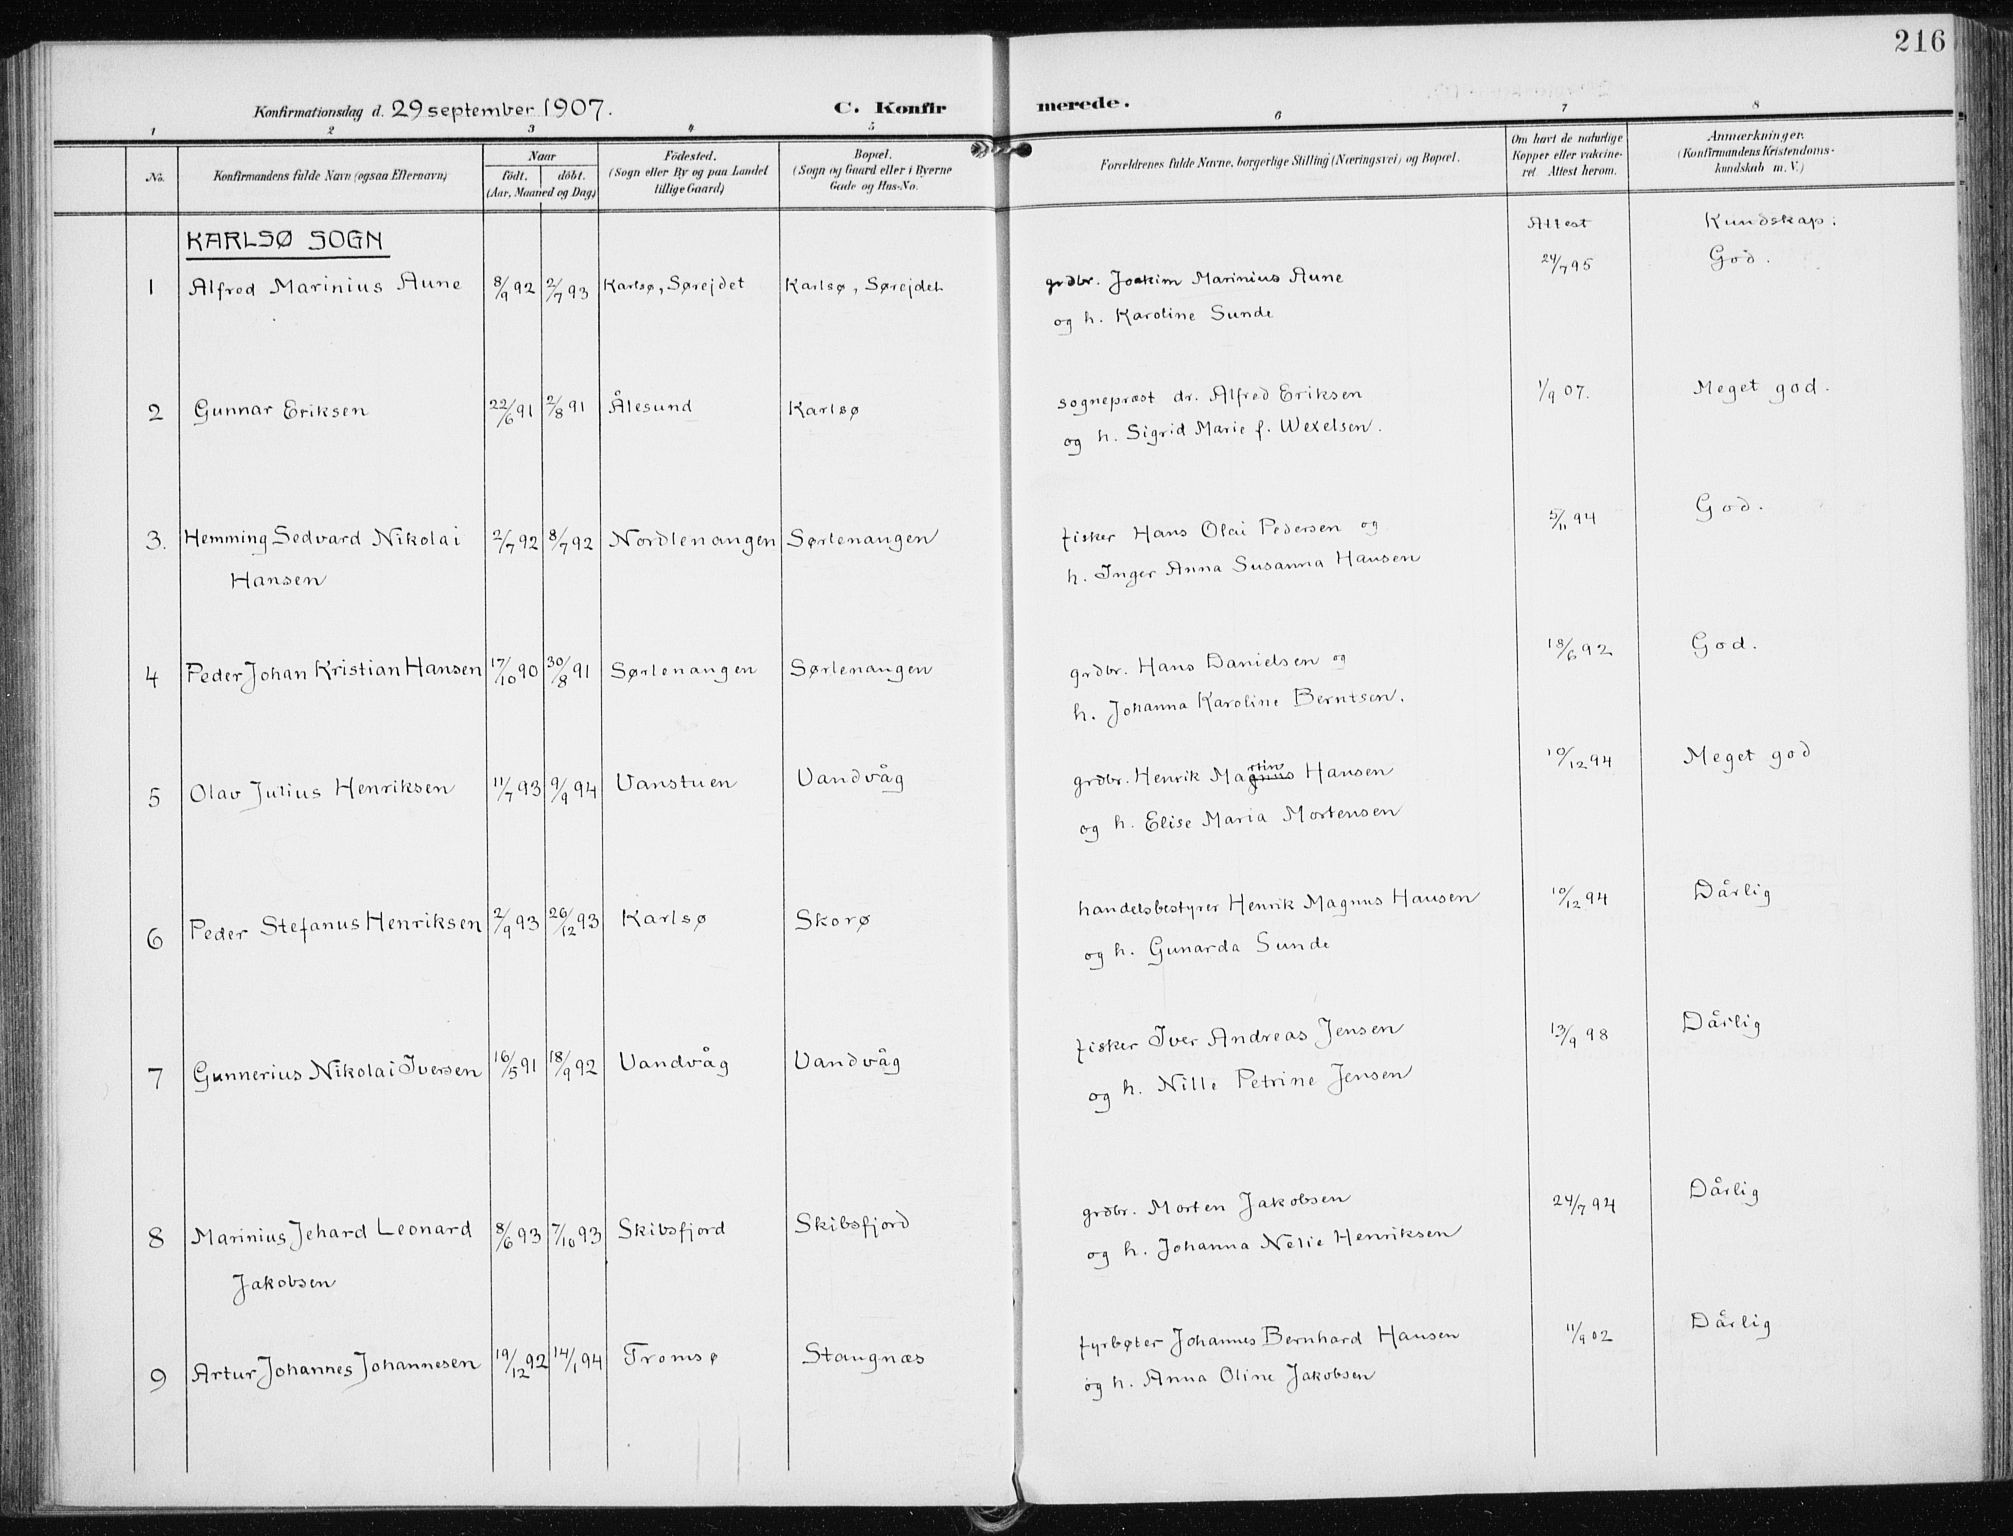 216
Konfirmationsdag d. 29 september 1907. C. Konfir merede.
1 2 3 4 5 6 7 8
No. Konfirmandens fulde Navn (ogsaa Efternavn) Naar födt. döbt. (Aar, Maaned og Dag) Födested. (Sogn eller By og paa Landet tillige Gaard) Bopæl. (Sogn og Gaard eller i Byerne Gade og Hus-No. Forældrenes fulde Navne, borgerlige Stilling (Næringsvei) og Bopæl. Om havt de naturlige Kopper eller vakcineret. Attest herom. Anmærkninger. (Konfirmandens Kristendomskundskab m. V.)
KARLSØ SOGN Attest Kundskap:
1 Alfred Marinius Aune 8/9 92 2/7 93 Karlsø, Sørejdet Karlsø, Sørejdet grdbr. Joakim Marinius Aune 24/7 95 God.
og h. Karoline Sunde
2 Gunnar Eriksen 22/6 91 2/8 91 Ålesund Karlsø sogneprest dr. Alfred Eriksen 1/9 07. Meget god.
og h. Sigrid Marie f. Wexelsen.
3. Hemming Sedvard Nikolai 2/7 92 8/7 92 Nordlenangen Sørlenangen fisker Hans Olai Pedersen og 5/11 94 God.
Hansen h. Inger Anna Susanna Hansen
4 Peder Johan Kristian Hansen 17/10 90 30/8 91 Sørlenangen Sørlenangen grdbr. Hans Danielsen og 18/6 92 God.
h. Johanna Karoline Berntsen.
5 Olav Julius Henriksen 11/7 93 9/9 94 Vanstuen Vandvåg grdbr. Henrik Martin Hansen 10/12 94 Meget god
og h. Elise Maria Mortensen
6 Peder Stefanus Henriksen 2/9 93 26/12 93 Karlsø Skorø handelsbestyrer Henrik Magnus Hansen 10/12 94 Dårlig
og h. Gunarda Sunde
7 Gunnerius Nikolai Iversen 16/5 91 18/9 92 Vandvåg Vandvåg fisker Iver Andreas Jensen 13/9 98 Dårlig
og h. Nille Petrine Jensen
8 Marinius Jehard Leonard 8/6 93 7/10 93 Skibsfjord Skibsfjord grdbr. Morten Jakobsen 24/7 94 Dårlig
Jakobsen og h. Johanna Nelie Henriksen
9 Artur Johannes Johannesen 19/12 92 14/1 94 Tromsø Stangnæs fyrbøter Johannes Bernhard Hansen 11/9 02 Dårlig
og h. Anna Oline Jakobsen